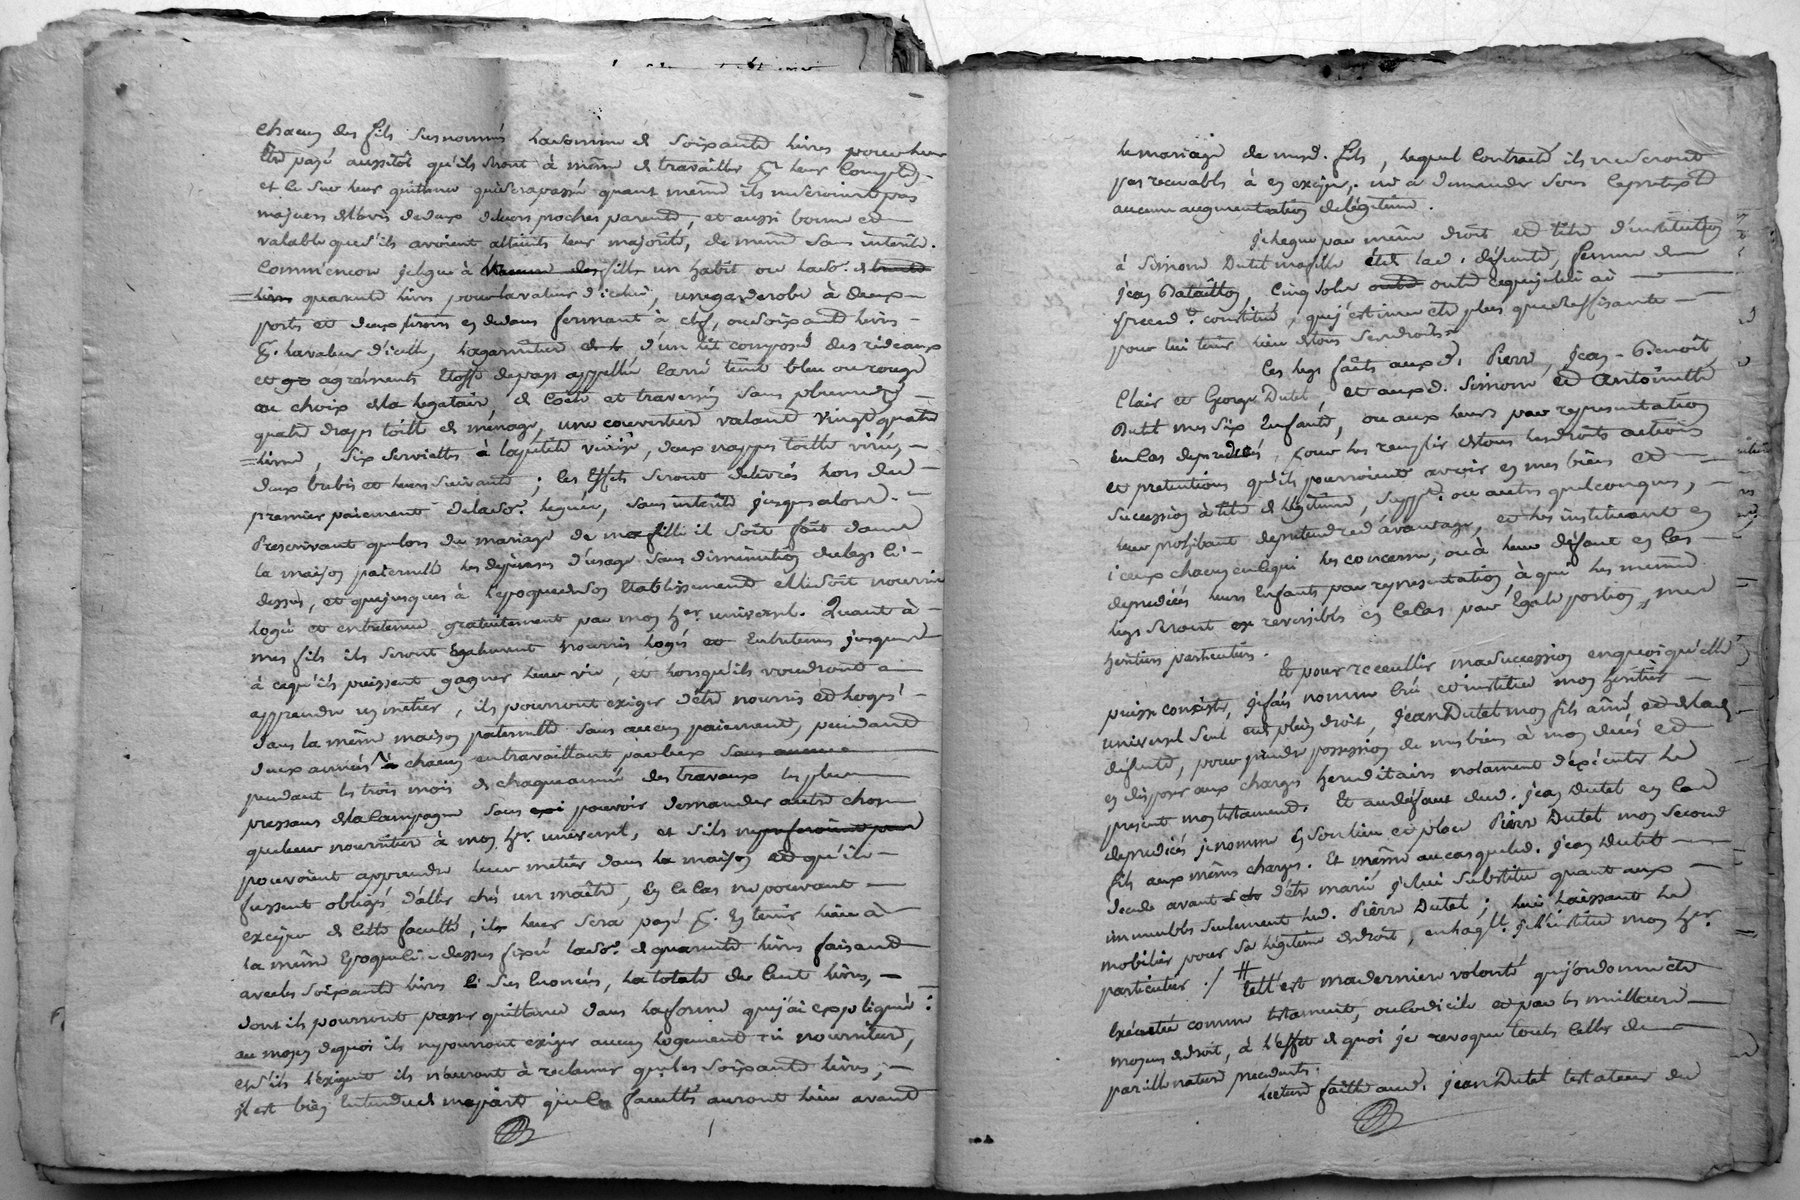 chacun des fils susnommés la somme de soixante livres pour leur
être payé aussitôt qu'ils seront à même de travailler pr. leur compte
et le sur leur quittance qui sera passée quant même ils ne seroint pas
majeurs de l'avis de deux de leurs proches parents, et aussi bonne et
valable que s'ils avoient atteints leur majorité, de même sans intérêt.
Comm'encore je legue à un habit ou la so. de
quarante livres pour la valeur d'icelui, une garderobe à deux
portes et deux tiroirs en dedans fermant à clef, ou soixante livres
pr. la valeur d'icelle, la garniture d'un lit composé des rideaux
et agréments étoffe de pays appellée carré teint bleu ou rouge
au choix de la legataire, de coete et traversin sans plume,
quatre draps toille de ménage, une couverture valant vingt quatre
livres, six serviettes à la petite venise, deux nappes toille
deux brebis et leurs suivants; les effets seront délivrés lors du
premier paiement de la so. leguée, sans intérêt jusques alors.
Prescrivant que lors du mariage de ma fille il soit fait dans
la maison paternelle les depenses d'usage sans diminution du legs ci-
dessus, et que jusques à l'epoque de son etablissement elle soit nourrie
logée et entretenue gratuitement par mon her. universel. Quant à
mes fils ils seront egalement nourris logés et entretenus jusques
à ce qu'ils puissent gagner leur vie, et lorsqu'ils voudront
apprendre un métier, ils pourront exiger d'être nourris et logés
dans la même maison paternelle sans aucun paiement, pendant
deux années chacun en travaillant par eux sans aucune
pendant les trois mois de chaque année des travaux les plus
pressans de la campagne sans pouvoir demander autre chose
que leur nourriture à mon her. universel, et s'ils
pouvoient apprendre leur metier dans la maison et qu'ils
fussent obligés d'aller chés un maître, en ce cas ne pouvant
exciper de cette faculté, il leur sera payé pr. en tenir lieu à
la même epoque ci-dessus fixée la so. de quarante livres faisant
avec les soixante livres sus enoncés, la totale de cent livres,
dont ils pourront passer quittance dans la forme que j'ai expliqué:
au moyen de quoi ils ne pourront exiger aucun logement ni nourriture,
et s'ils l'exigent ils n'auront à reclamer que les soixante livres;
il est bien entendu de ma part que les facultés auront lieu avant
le mariage de mesd. fils, lequel contracté ils ne seront
pas recevables à en exciper, ni à demander sous ce pretexte
aucune augmentation de légitime.
Je legue par même droit et titre d'institution
à Simone Dutel ma fille et de lad. défunte, femme de
Jean Bataillon, cinq sols outre ce que je lui ai
preced.t constitué, que j'estime etre plus que suffisante
pour lui tenir lieu de tous ses droits.
Les legs faits auxd. Pierre, Jean-Benoît,
Clair et George Dutel, et auxd. Simone et Antoinette
Dutel mes six enfants, ou aux leurs par representation
en cas de predécés, pour les remplir de tous les droits actions
et pretentions qu'ils pourroient avoir en mes biens et
succession à titre de légitime, supplt. ou autres quelconques,
leur prohibant de pretendre d'avantage, et les instituant en
iceux chacun en ce qui les concerne, ou à leur défaut en cas
depredécés leurs enfants par representation, à qui les mêmes
legs seront reversibles en ce cas par egale portion, mes
heritiers particuliers.
Et pour recueillir ma succession en quoi qu'elle
puisse consister, je fais nomme crée et institue mon heritier
universel seul en plein droit, Jean Dutel mon fils ainé et de lad.
défunte, pour prendre possession de mes biens à mon décés et
en disposer aux charges hereditaires notament d'exécuter le
present mon testament. Et au défaut dud. Jean Dutel en cas
de predécés je nomme en son lieu et place Pierre Dutel mon second
fils aux mêmes charges. Et même au cas que led. Jean Dutel
decede avant d'être marié je lui substitue quant aux
immeubles seulement led. Pierre Dutel; lui laissant le
mobilier pour sa légitime de droit, en laqlle. je l'institue mon her.
particulier ./ # Tell'est ma derniere volonté que j'ordonne être
exécutée comme testament, ou codicile et par les meilleurs
moyens de droit, à l'effet de quoi je revoque touts ceux de
pareille nature precedents.
Lecture faitte aud. Jean Dutel testateur du